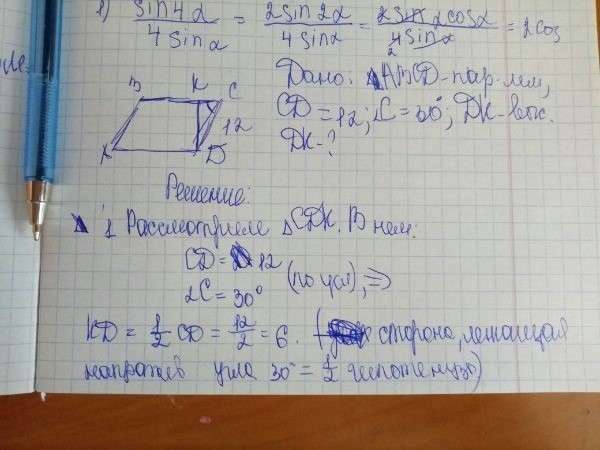 1) sin4α / 4sinα = 2sin2α / 4sinα = 2sinα cosα / 4sinα = 2cos
2
Дано: ABCD-пар-лм,
CD=12; ∠C=30°; DK-выс.
DK-?
B K C
12
A D
Решение:
1 Рассмотрим △CDK. В нем:
CD=12
∠C=30° (по усл), ⇒
KD = 1/2 CD = 12/2 = 6. (сторона, лежащая
напротив угла 30° = 1/2 гипотенузы)